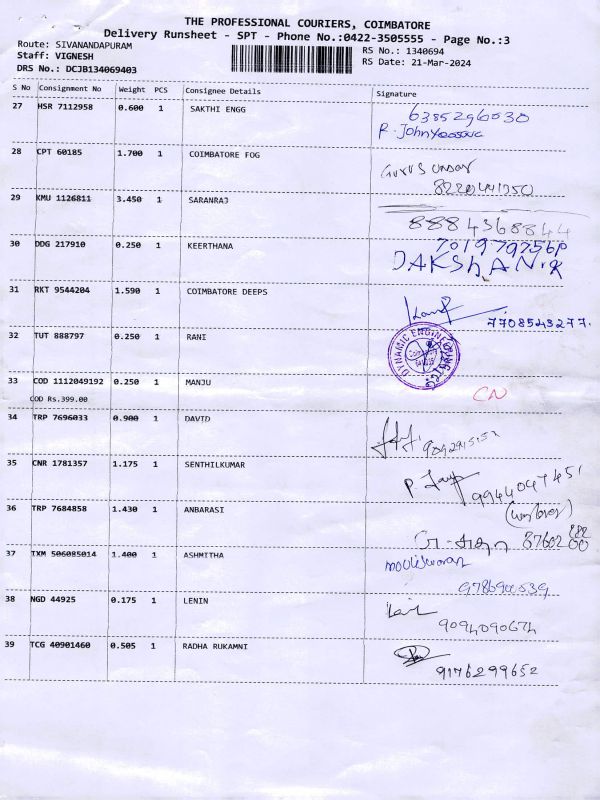 THE PROFESSIONAL COURIERS, COIMBATORE
Delivery Runsheet - SPT - Phone No.:0422-3505555 - Page No.:3
Route: SIVANANDAPURAM
RS No.: 1340694
Staff: VIGNESH
RS Date: 21-Mar-2024
DRS No.: DCJB134069403
S No Consignment No Weight PCS Consignee Details Signature
27 HSR 7112958 0.600 1 SAKTHI ENGG 6385296030
R.
28 CPT 60185 1.700 1 COIMBATORE FOG
29 KMU 1126811 3.450 1 SARANRAJ
8884368844
30 DDG 217910 0.250 1 KEERTHANA
DAKSHANIKA
31 RKT 9544204 1.590 1 COIMBATORE DEEPS
7708543277.
32 TUT 888797 0.250 1 RANI
DYNAMIC ENGINEOUR
33 COD 1112049192 0.250 1 MANJU
COD Rs.399.00
CN
34 TRP 7696033 0.900 1 DAVID
35 CNR 1781357 1.175 1 SENTHILKUMAR
P.
9944047451
36 TRP 7684858 1.430 1 ANBARASI
37 TXM 506085014 1.400 1 ASHMITHA
38 NGD 44925 0.175 1 LENIN
9094090674
39 TCG 40901460 0.505 1 RADHA RUKAMNI
9176299652